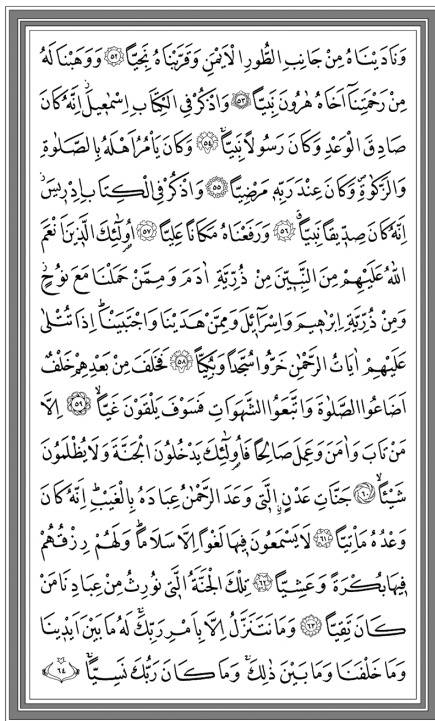 وَنَادَيْنَاهُ مِنْ جَانِبِ الطُّورِ الْاَيْمَنِ وَقَرَّبْنَاهُ نَجِيًّا ﴿٥٢﴾ وَوَهَبْنَا لَهُ
مِنْ رَحْمَتِنَٓا اَخَاهُ هٰرُونَ نَبِيًّا ﴿٥٣﴾ وَاذْكُرْ فِي الْكِتَابِ اِسْمٰعٖيلَۘ اِنَّهُ كَانَ
صَادِقَ الْوَعْدِ وَكَانَ رَسُولًا نَبِيًّاۚ ﴿٥٤﴾ وَكَانَ يَأْمُرُ اَهْلَهُ بِالصَّلٰوةِ
وَالزَّكٰوةِۖ وَكَانَ عِنْدَ رَبِّهٖ مَرْضِيًّا ﴿٥٥﴾ وَاذْكُرْ فِي الْكِتَابِ اِدْرٖيسَۘ
اِنَّهُ كَانَ صِدّٖيقًا نَبِيًّاۗ ﴿٥٦﴾ وَرَفَعْنَاهُ مَكَانًا عَلِيًّا ﴿٥٧﴾ اُو۬لٰٓئِكَ الَّذٖينَ اَنْعَمَ
اللّٰهُ عَلَيْهِمْ مِنَ النَّبِيّٖنَ مِنْ ذُرِّيَّةِ اٰدَمَ وَمِمَّنْ حَمَلْنَا مَعَ نُوحٍۘ
وَمِنْ ذُرِّيَّةِ اِبْرٰهٖيمَ وَاِسْرَٓائٖلَ وَمِمَّنْ هَدَيْنَا وَاجْتَبَيْنَاۜ اِذَا تُتْلٰى
عَلَيْهِمْ اٰيَاتُ الرَّحْمٰنِ خَرُّوا سُجَّدًا وَبُكِيًّا ﴿٥٨﴾ فَخَلَفَ مِنْ بَعْدِهِمْ خَلْفٌ
اَضَاعُوا الصَّلٰوةَ وَاتَّبَعُوا الشَّهَوَاتِ فَسَوْفَ يَلْقَوْنَ غَيًّاۙ ﴿٥٩﴾ اِلَّا
مَنْ تَابَ وَاٰمَنَ وَعَمِلَ صَالِحًا فَاُو۬لٰٓئِكَ يَدْخُلُونَ الْجَنَّةَ وَلَا يُظْلَمُونَ
شَيْئًاۙ ﴿٦٠﴾ جَنَّاتِ عَدْنٍۨ الَّتٖي وَعَدَ الرَّحْمٰنُ عِبَادَهُ بِالْغَيْبِۜ اِنَّهُ كَانَ
وَعْدُهُ مَأْتِيًّا ﴿٦١﴾ لَا يَسْمَعُونَ فٖيهَا لَغْوًا اِلَّا سَلَامًاۜ وَلَهُمْ رِزْقُهُمْ
فٖيهَا بُكْرَةً وَعَشِيًّا ﴿٦٢﴾ تِلْكَ الْجَنَّةُ الَّتٖي نُورِثُ مِنْ عِبَادِنَا مَنْ
كَانَ تَقِيًّا ﴿٦٣﴾ وَمَا نَتَنَزَّلُ اِلَّا بِاَمْرِ رَبِّكَۚ لَهُ مَا بَيْنَ اَيْدٖينَا
وَمَا خَلْفَنَا وَمَا بَيْنَ ذٰلِكَۚ وَمَا كَانَ رَبُّكَ نَسِيًّاۚ ﴿٦٤﴾